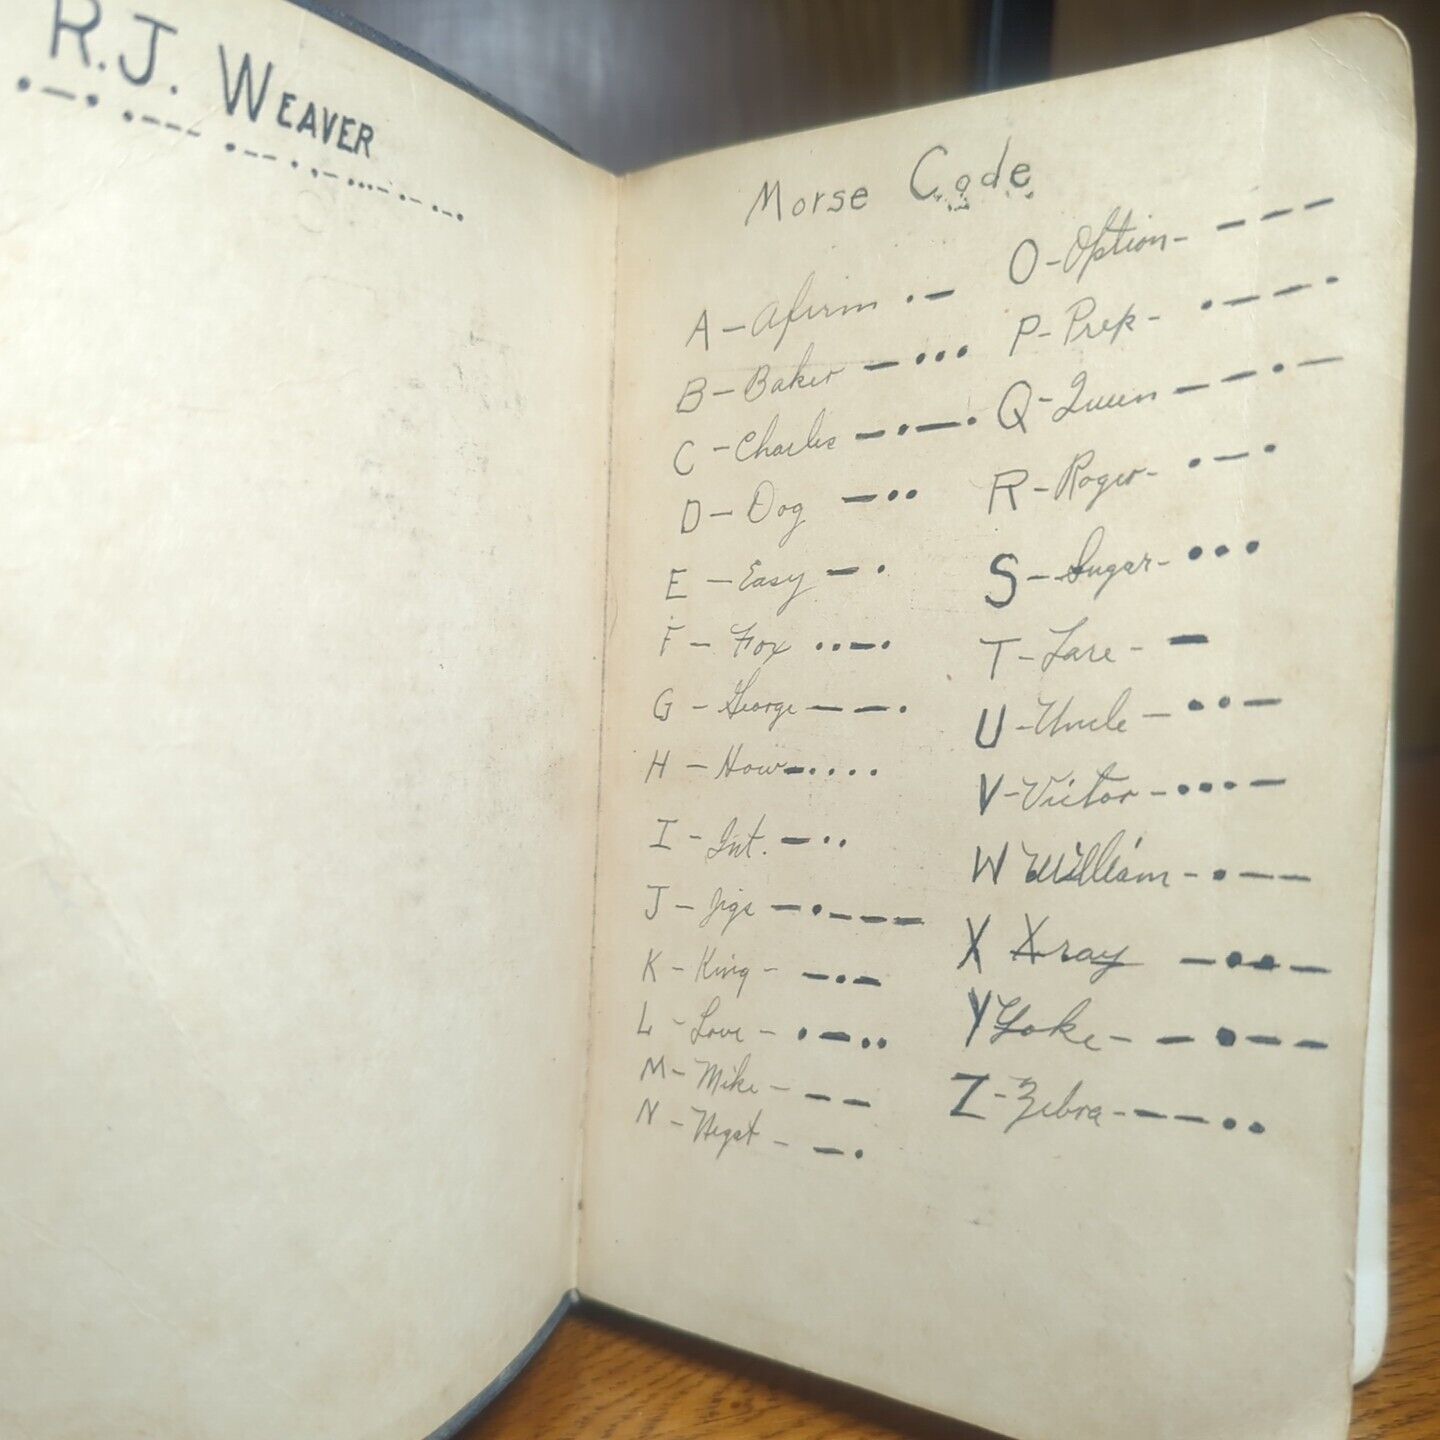 R.J. WEAVER
.-. .--- .-- . .- ...- . .-.
Morse Code
A - Afirm .-
B - Baker -...
C - Charlie -.-.
D - Dog -..
E - Easy - .
F - Fox ..-.
G - George --.
H - How - ....
I - Int. - ..
J - Jigs - .---
K - King - -.-
L - Love - .-..
M - Mike - --
N - Negat - -.
O - Option - ---
P - Prep - .--.
Q - Queen --.-
R - Roger - .-.
S - Sugar - ...
T - Tare - -
U - Uncle - ..-
V - Victor - ...-
W William - .--
X Xray -..-
Y Yoke - -.--
Z - Zebra - --..